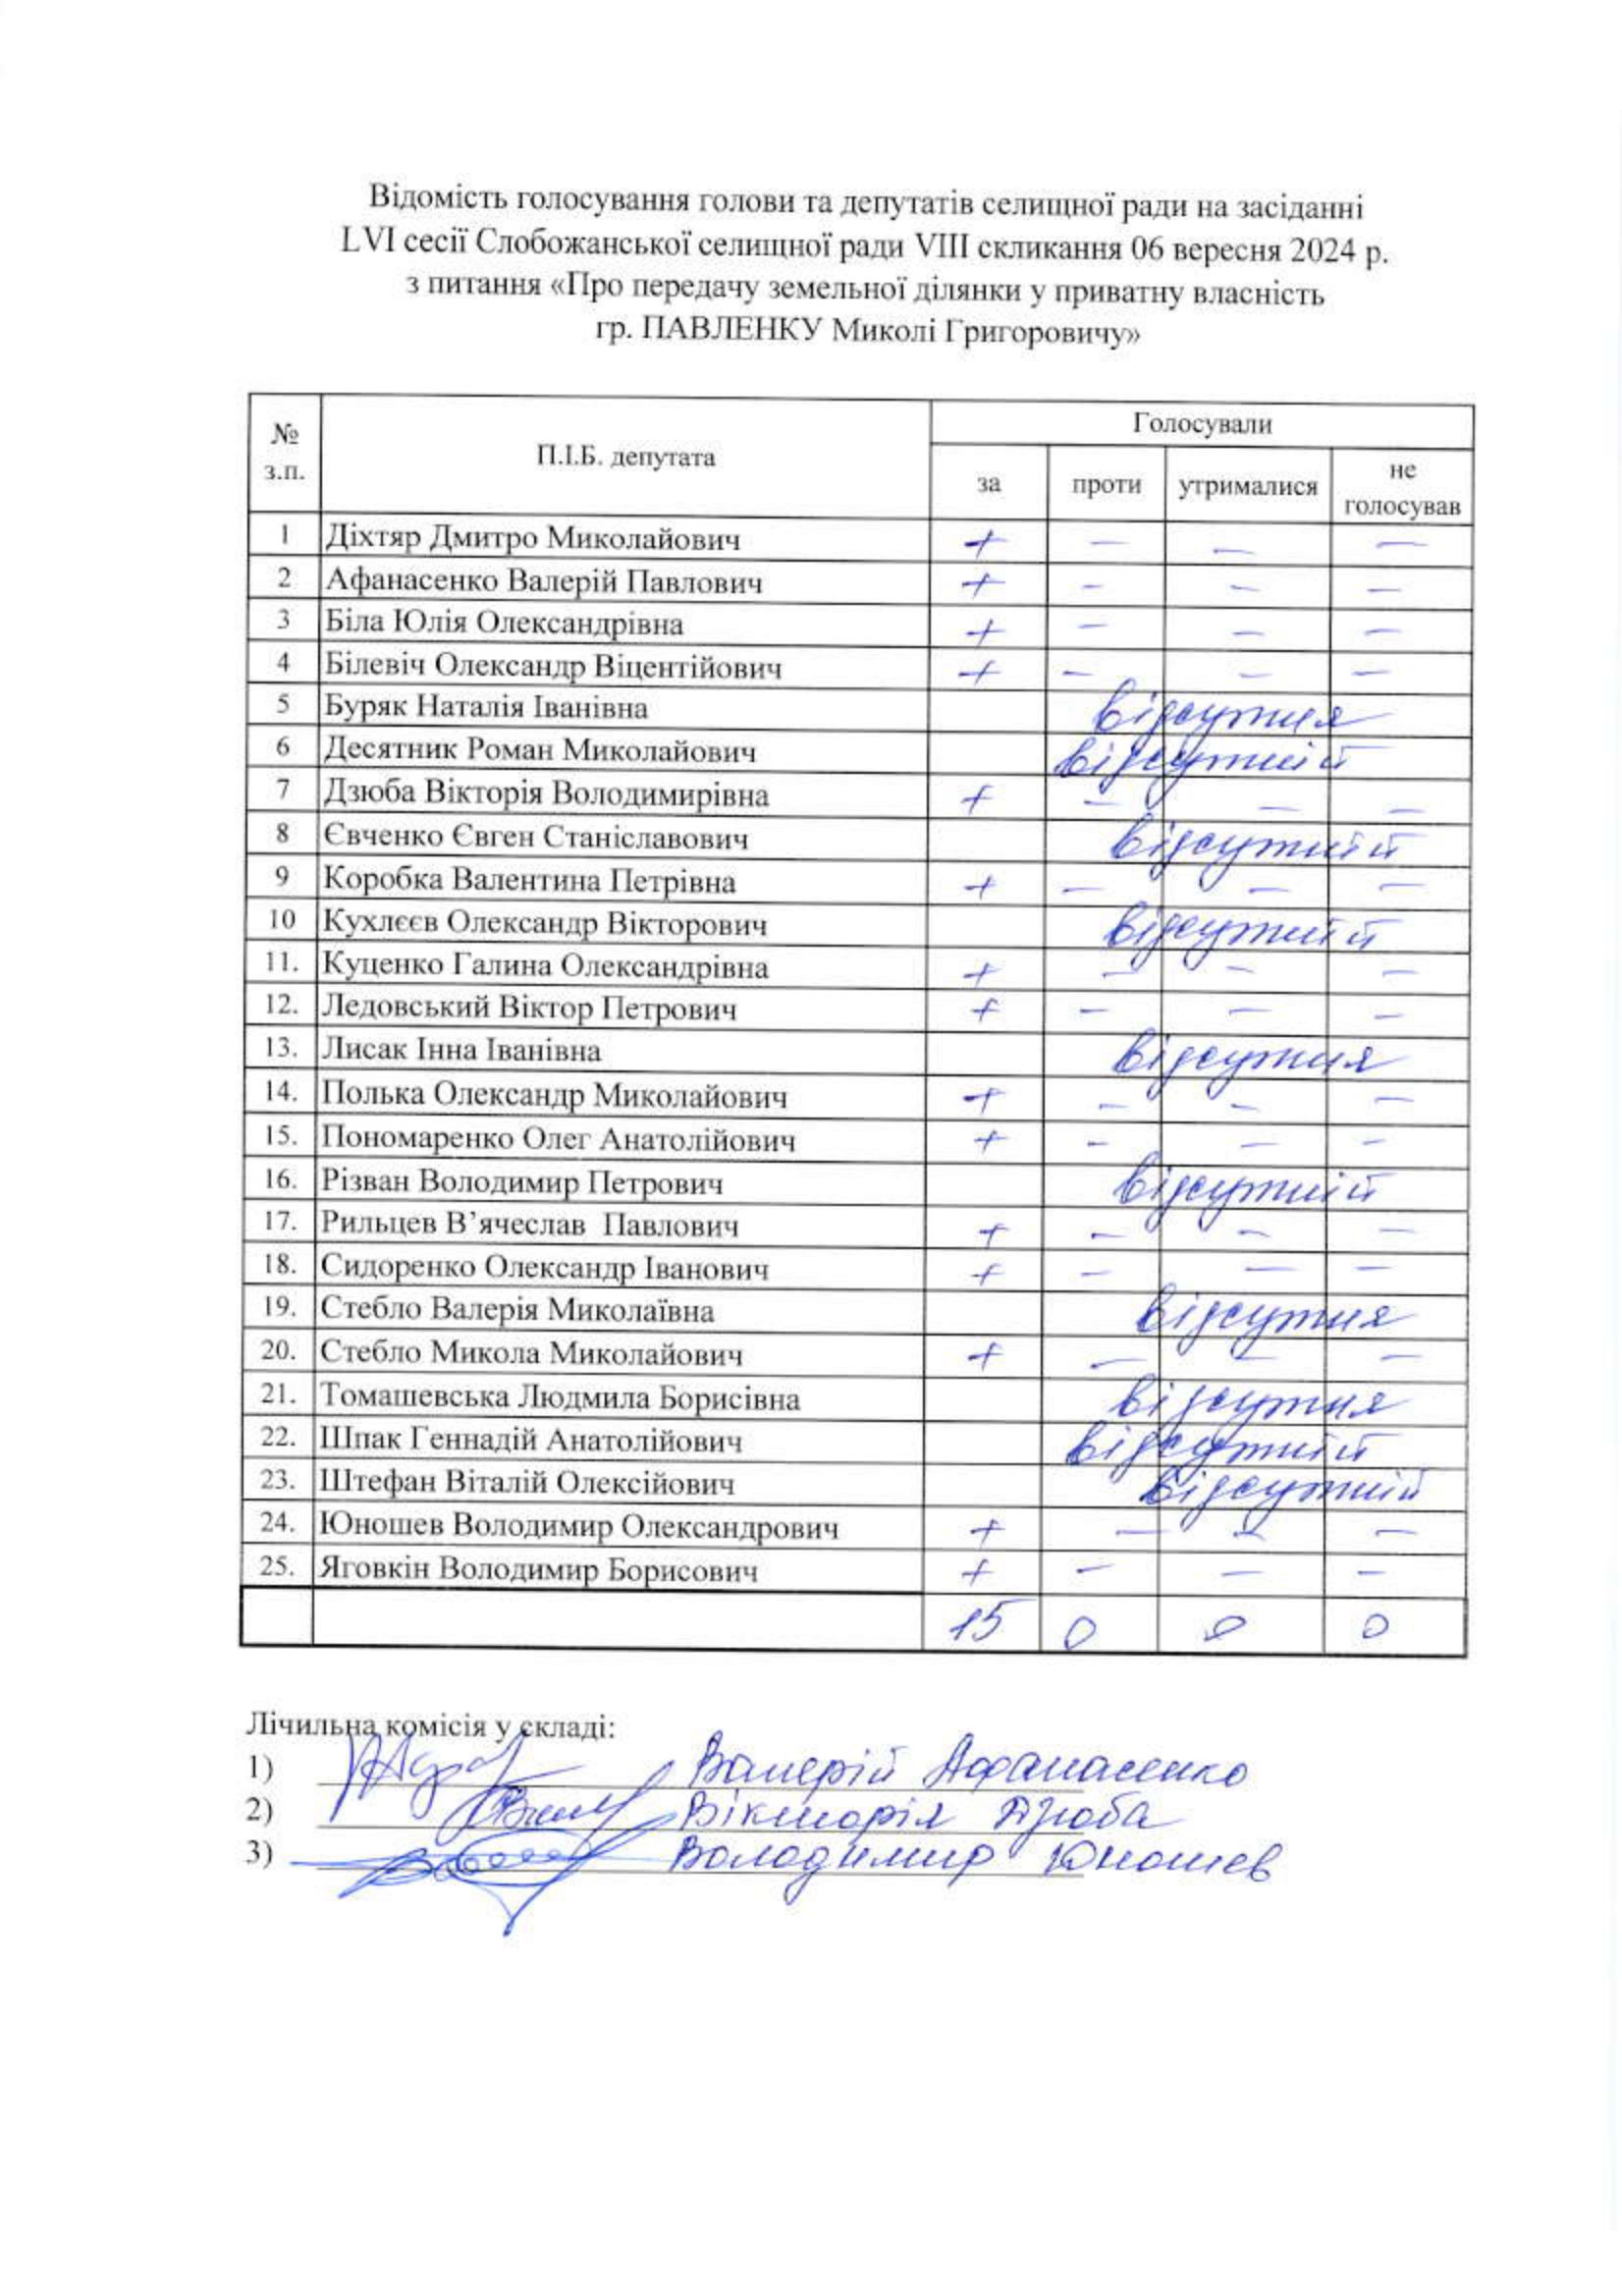 Відомість голосування голови та депутатів селищної ради на засіданні
LVI сесії Слобожанської селищної ради VIII скликання 06 вересня 2024 р.
з питання «Про передачу земельної ділянки у приватну власність
гр. ПАВЛЕНКУ Миколі Григоровичу»
№ з.п. П.І.Б. депутата Голосували
за проти утрималися не голосував
1 Діхтяр Дмитро Миколайович + — — —
2 Афанасенко Валерій Павлович + — — —
3 Біла Юлія Олександрівна + — — —
4 Білевіч Олександр Віцентійович + — — —
5 Буряк Наталія Іванівна відсутня
6 Десятник Роман Миколайович відсутній
7 Дзюба Вікторія Володимирівна + — — —
8 Євченко Євген Станіславович відсутній
9 Коробка Валентина Петрівна + — — —
10 Кухлєєв Олександр Вікторович відсутній
11. Куценко Галина Олександрівна + — — —
12. Ледовський Віктор Петрович + — — —
13. Лисак Інна Іванівна відсутня
14. Полька Олександр Миколайович + — — —
15. Пономаренко Олег Анатолійович + — — —
16. Різван Володимир Петрович відсутній
17. Рильцев В’ячеслав Павлович + — — —
18. Сидоренко Олександр Іванович + — — —
19. Стебло Валерія Миколаївна відсутня
20. Стебло Микола Миколайович + — — —
21. Томашевська Людмила Борисівна відсутня
22. Шпак Геннадій Анатолійович відсутній
23. Штефан Віталій Олексійович відсутній
24. Юношев Володимир Олександрович + — — —
25. Яговкін Володимир Борисович + — — —
15 0 0 0
Лічильна комісія у складі:
1) Валерій Афанасенко
2) Вікторія Дзюба
3) Володимир Юношев